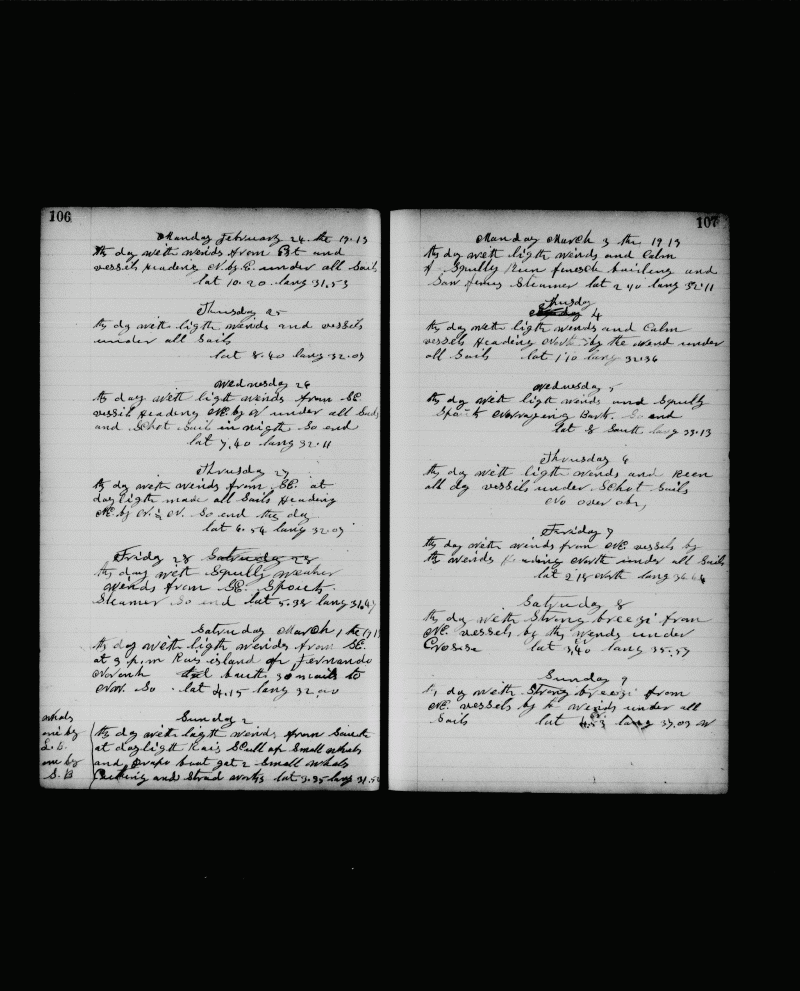 106
Manday February 24. the 19.19
ths day with winds from Et and
vessels Heading N. by E. under all Sails
lat 10.20 lang 31.53
Thusday 25
ths dy with ligth winds and vessels
under all Sails
lat 8.40 lang 32.09
Wednesday 26
ths day with ligth winds from SE.
vessil Heading NE. by N under all Sails
and Schot Sail in nigth So end
lat 7.40 lang 32.11
Thrusday 27
ths day with winds from SE. at
day ligth made all Sails Heading
NE. by N. & N. So end the day
lat 6.54 lang 32.09
Friday 28 Saturday 28
ths day with Squlls weather
winds from SE. Spouts
Steamer So end lat 5.38 lang 31.47
Satruday March 1 the 1919
ths day with ligth winds from SE.
at 3 p,m Rais island of Fernando
Noronh and 30 mails to
Nor. So. lat 4.15 lang 32,00
Sunday 2
whals
one by
L. B.
one by
S. B
ths day with ligth winds from South
at day ligth Rais Scull of Small whals
and boat get 2 Small whals
Cutting and Strad works lat 3.35 lang 31.5
107
Manday March 3 the 1919
ths day with ligth winds and Calm
& Squlls Run finesch builing and
Saw Steamer lat 2 40 lang 32.11
Thusday
4
ths day with ligth winds and Calm
vessels Heading North by the Wend under
all Sails lat 1'10 lang 32.36
Wednesday 5
ths day with ligth winds and Squlls
Bark. So end
lat 8 South lang 33.13
Thrusday 6
ths day with ligth winds and Reen
all dey vessils under Schot Sails
No over obr,
Fariday 7
ths day with winds from NE. vessels by
the weinds Heading North under all Sails
lat 2'18 North lang 34.44
Satruday 8
ths day with Streng breezi from
NE. vessels by ths wends under
Crosse lat 3,40 lang 35.57
Sunday 9
ths day with Streng breezi from
NE. vessels by weinds under all
Sails lat 4.53 lang 37.09 W